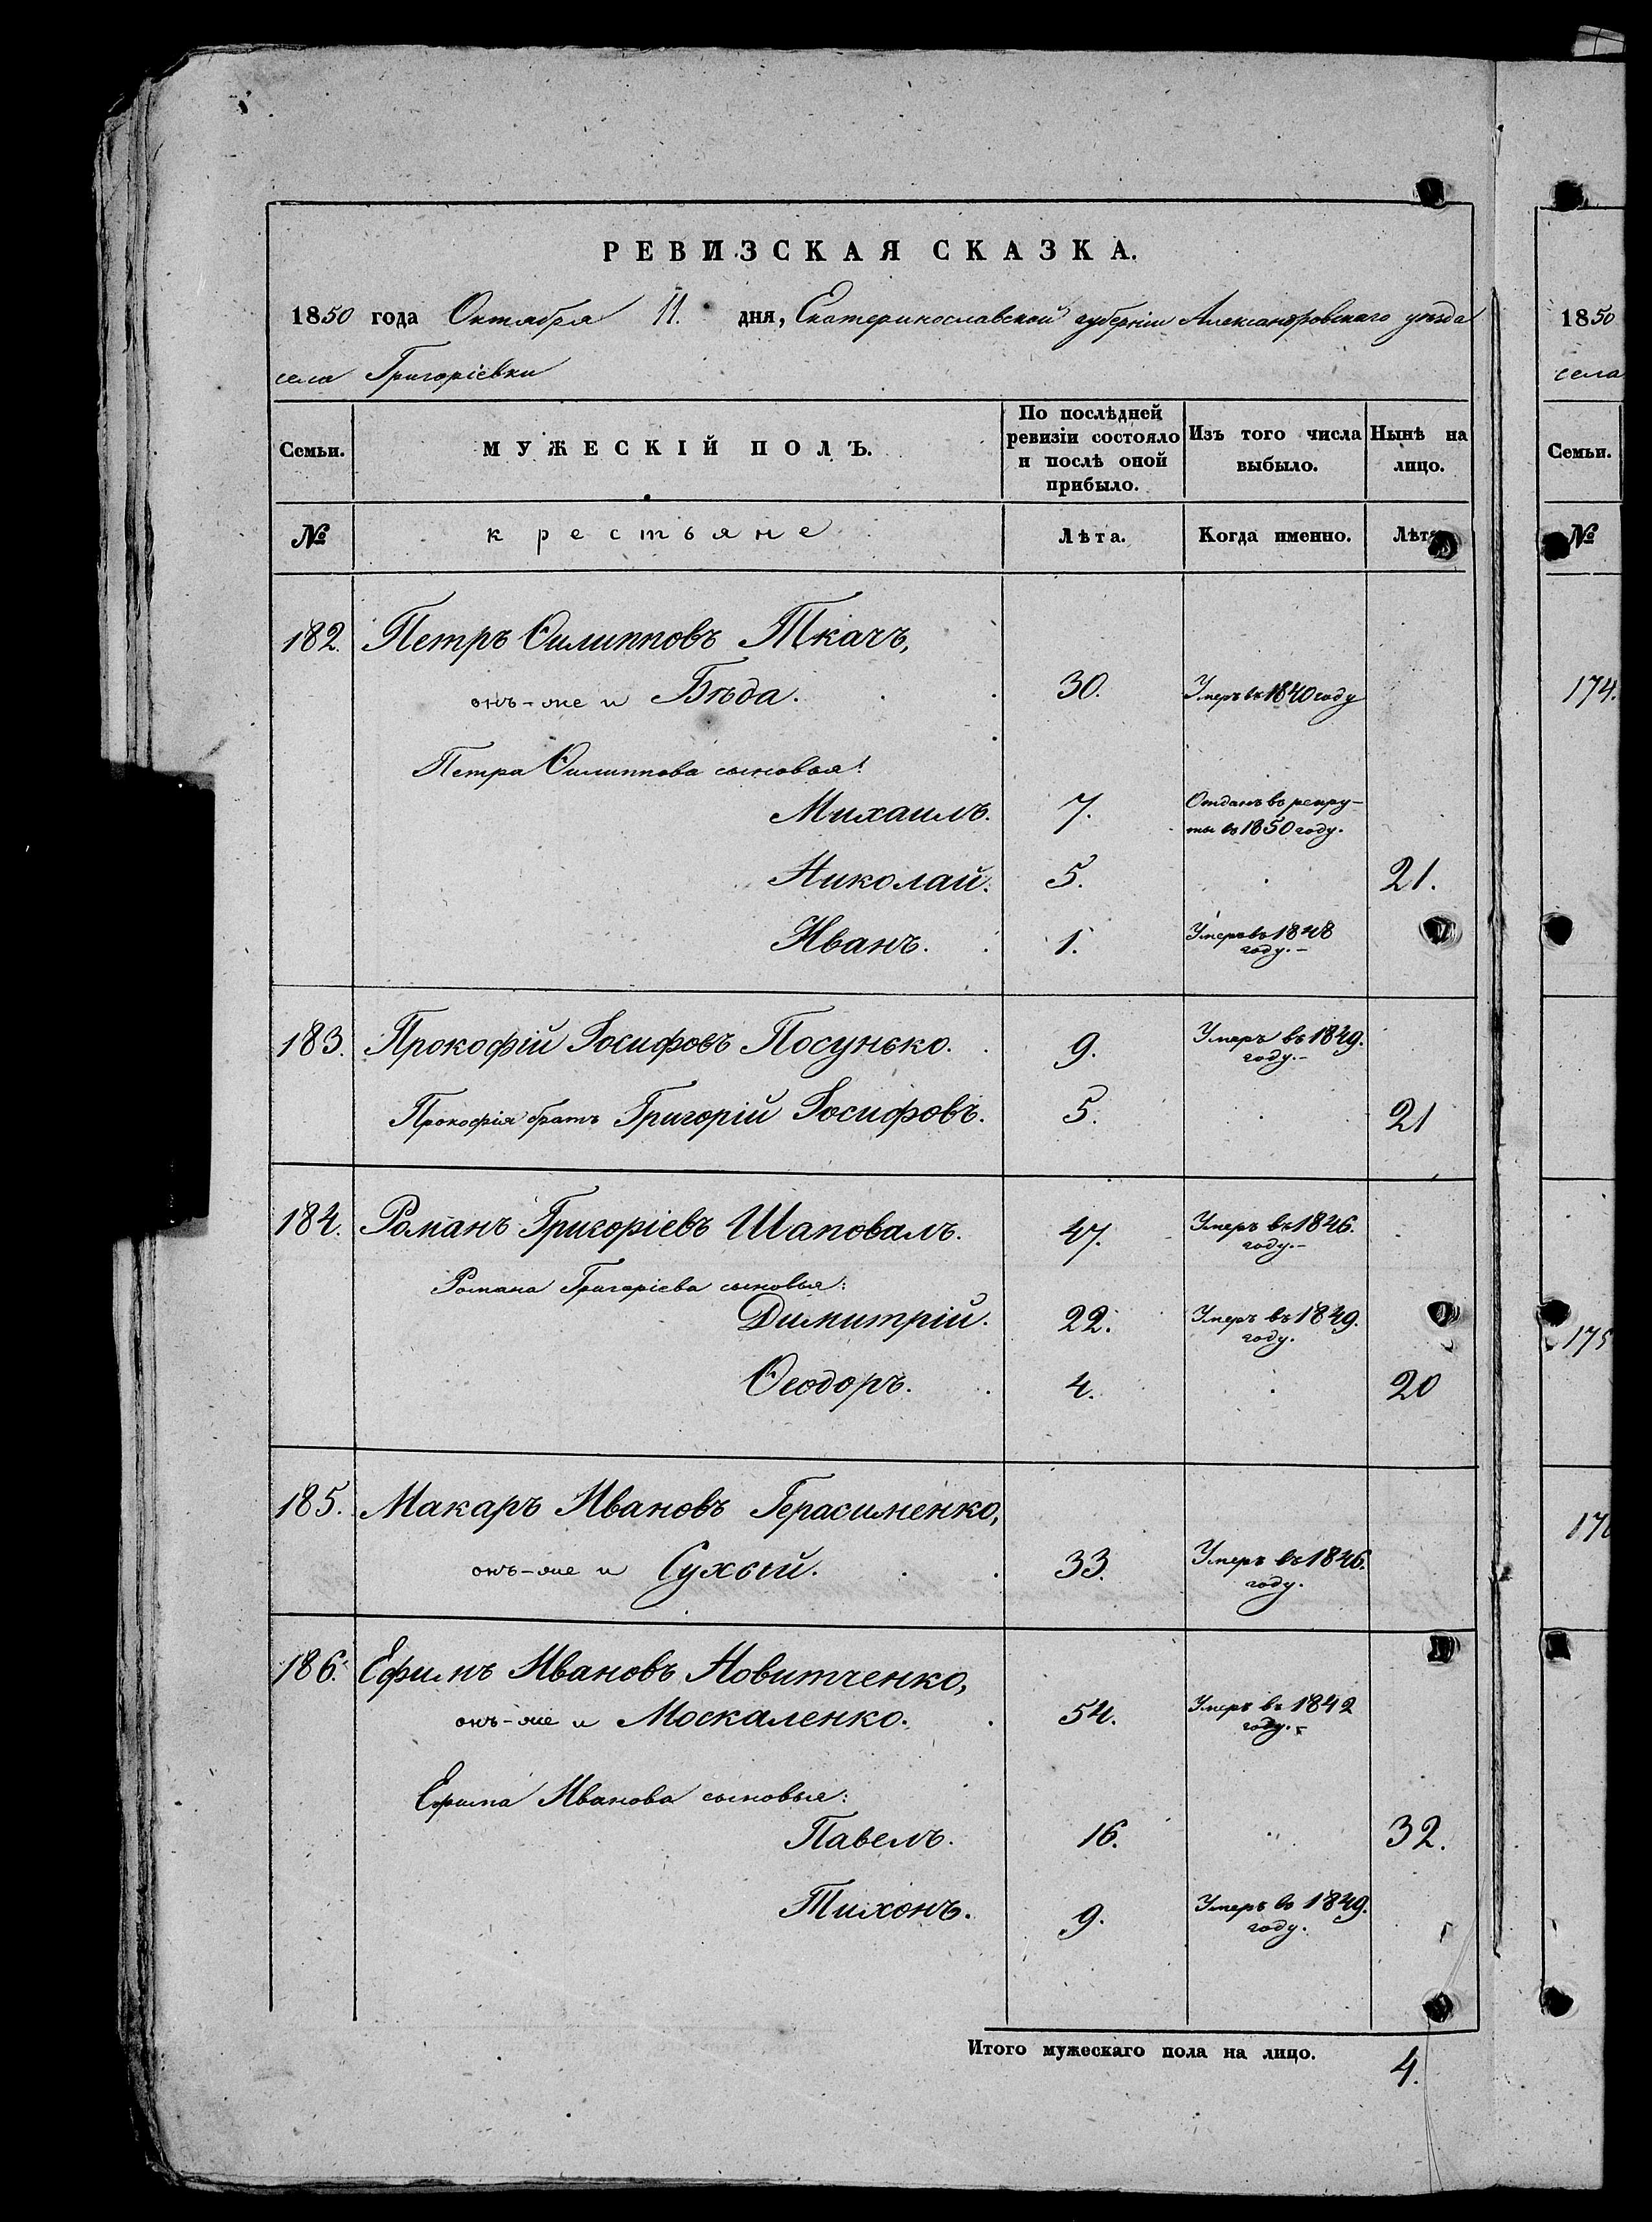 РЕВИЗСКАЯ СКАЗКА.
1850 года Октября 11. дня, Екатеринославской губерніи Александровскаго уѣзда
села Григоріевки
Семьи. МУЖЕСКІЙ ПОЛЪ. По послѣдней ревизіи состояло и послѣ оной прибыло. Изъ того числа выбыло. Нынѣ на лицо.
№ крестьяне Лѣта. Когда именно. Лѣта
182. Петръ Ѳилипповъ Ткачъ,
онъ-же и Бѣда. 30. Умеръ въ 1840 году
Петра Ѳилиппова сыновья:
Михаилъ. 7. Отданъ въ рекру-
ты въ 1850 году.
Николай. 5. 21.
Иванъ. 1. Умеръ въ 1848
году.-
183. Прокофій Іосифовъ Посунько. 9. Умеръ въ 1849.
году.-
Прокофія братъ Григорій Іосифовъ. 5. 21
184. Романъ Григоріевъ Шаповалъ. 47. Умеръ въ 1846.
году.-
Романа Григоріева сыновья:
Димитрій. 22. Умеръ въ 1849.
году.
Ѳеодоръ. 4. 20
185. Макаръ Ивановъ Герасименко,
онъ-же и Сухой. 33. Умеръ въ 1846.
году.
186. Ефимъ Ивановъ Новитченко,
онъ-же и Москаленко. 54. Умеръ въ 1842
году.-
Ефима Иванова сыновья:
Павелъ. 16. 32.
Тихонъ. 9. Умеръ въ 1849.
году.
Итого мужескаго пола на лицо. 4.
1850
села
Семьи.
№
174.
175